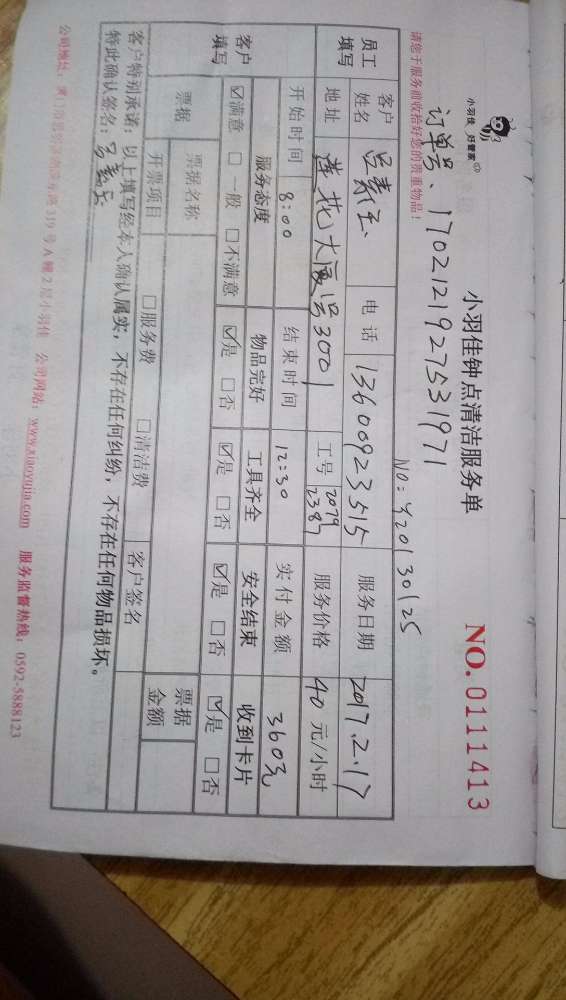 小羽佳 好管家
小羽佳钟点清洁服务单
NO.0111413
请您于服务前收拾好您的贵重物品!
NO: 420130125
订单号、1702121927531971
员工填写 客户姓名 电话 13600923515 服务日期 2017.2.17
地址 莲花大厦 3001 工号 2079 2387 服务价格 40 元/小时
开始时间 8:00 结束时间 12:30 实付金额 360元
客户填写 服务态度 物品完好 工具齐全 安全结束 收到卡片
☑满意 □一般 □不满意 ☑是 □否 ☑是 □否 ☑是 □否 ☑是 □否
票据 票据名称 票据金额
开票项目 □服务费 □清洁费 客户签名
客户特别承诺:以上填写经本人确认属实,不存在任何纠纷,不存在任何物品损坏。
特此确认签名:
公司地址: 319号A幢2层小羽佳 公司网站:www.xiaoyujia.com 服务监督热线:0592-5888123